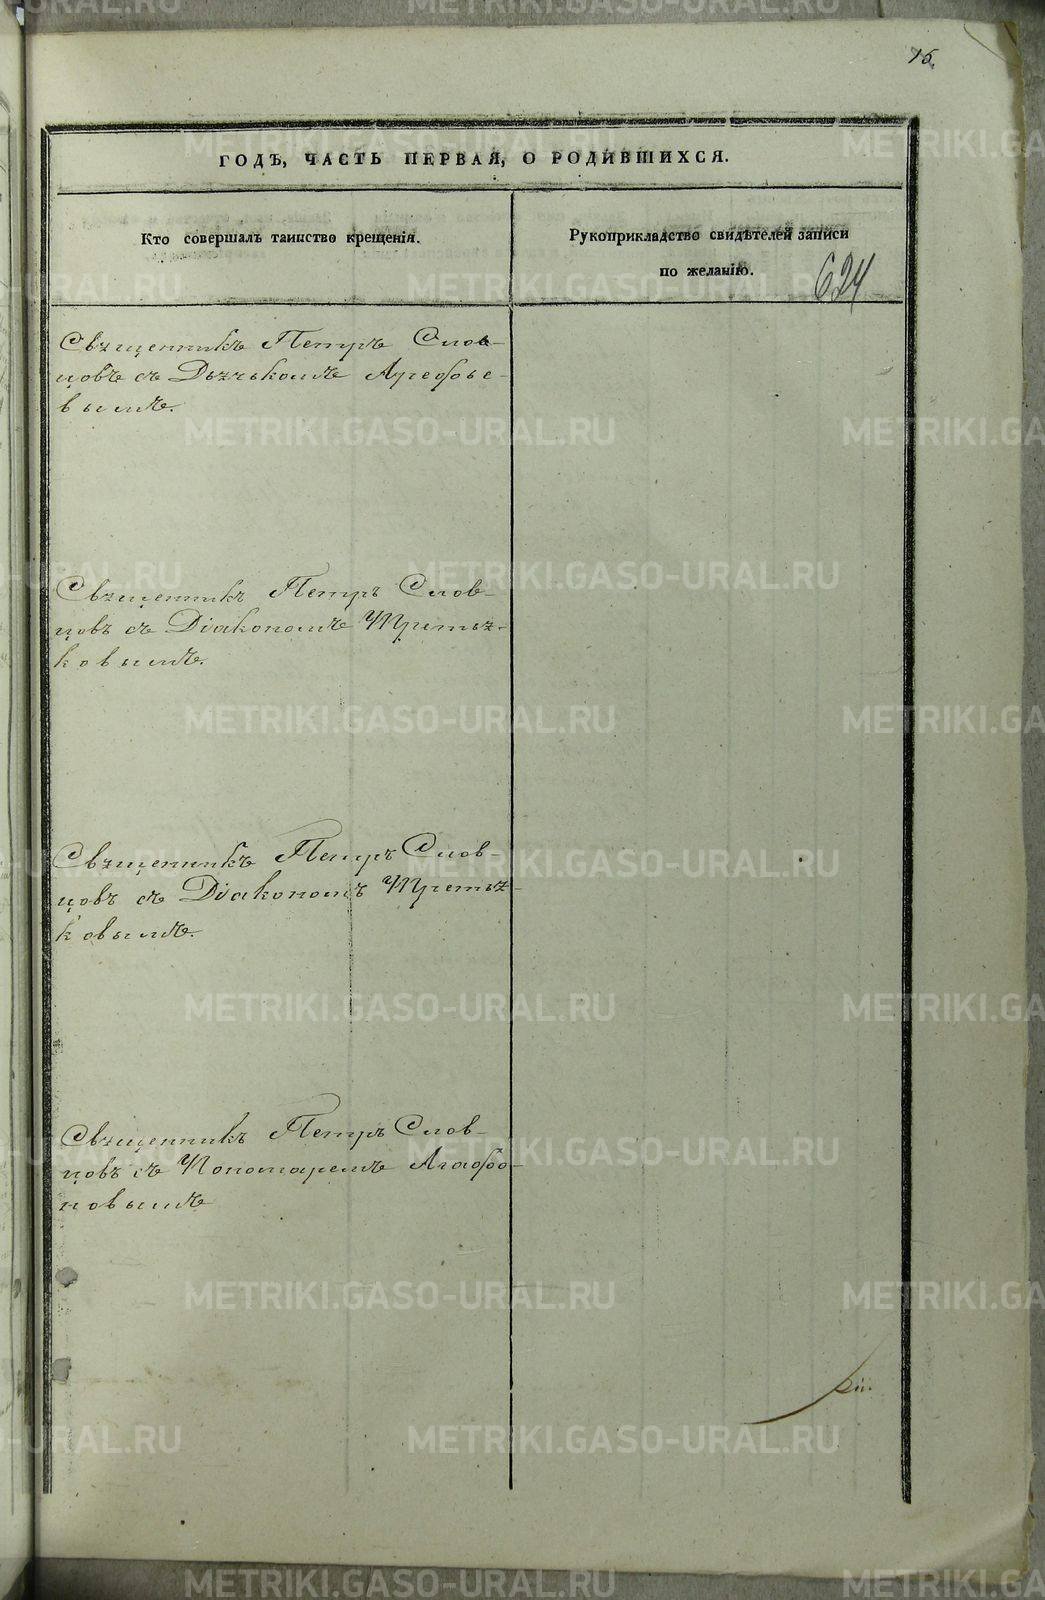 16.
ГОДЪ, ЧАСТЬ ПЕРВАЯ, О РОДИВШИХСЯ.
Кто совершалъ таинство крещенія.
Рукоприкладство свидѣтелей записи
по желанію.
624
Священникъ Петръ Слов-
цовъ съ Дьячькомъ Арефье-
вымъ.
Священникъ Петръ Слов-
цовъ съ Діакономъ Третья-
ковымъ.
Священникъ Петръ Слов-
цовъ съ Діакономъ Третья-
ковымъ.
Священникъ Петръ Слов-
цовъ съ Пономаремъ Агафо-
новымъ
METRIKI.GASO-URAL.RU